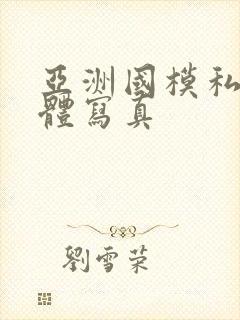 亞洲國模私
體寫真
劉雪荣